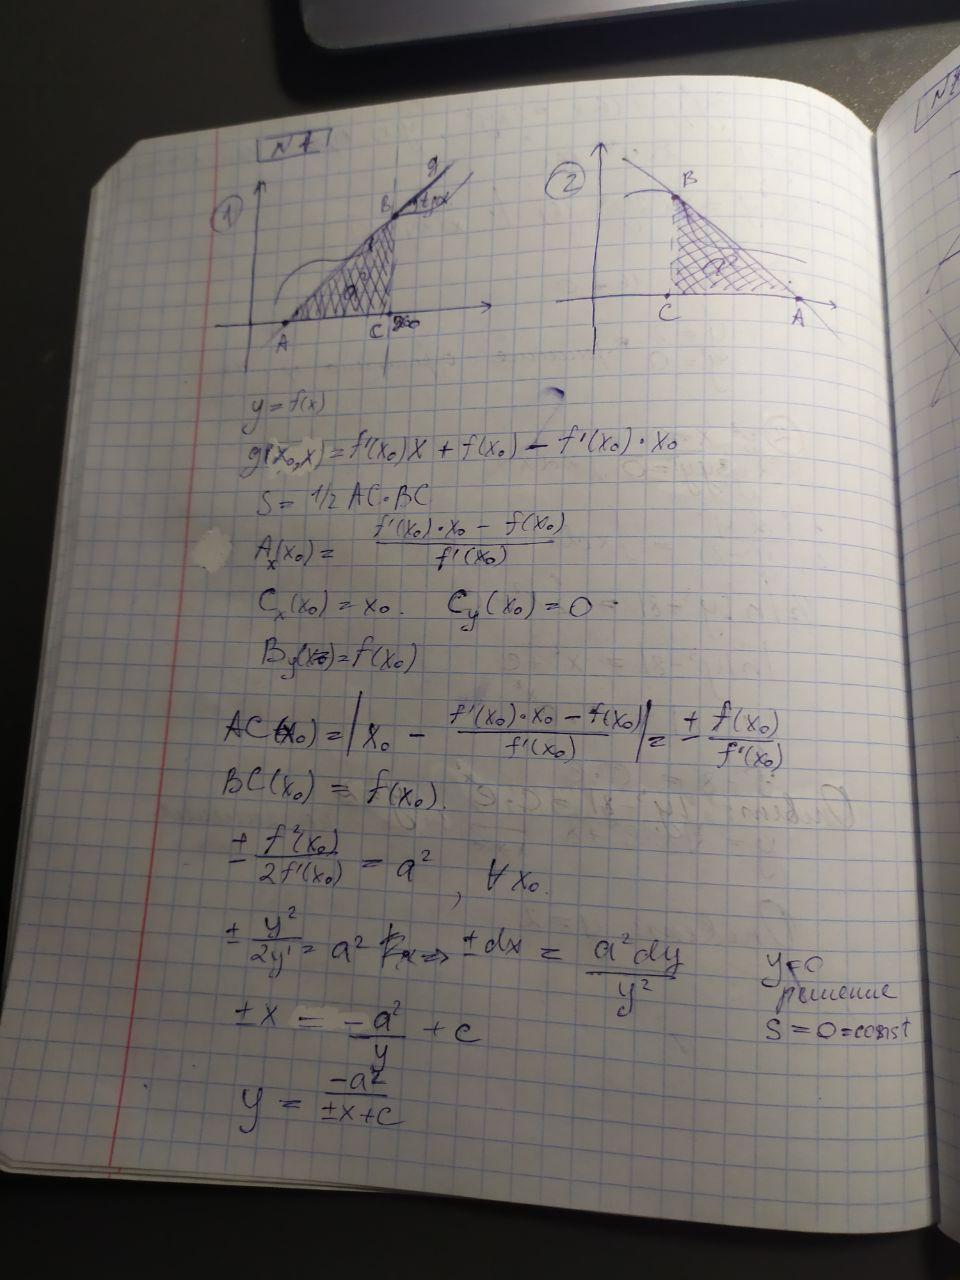 N1
① g B a² A C x₀
② B a² C A
y = f(x)
g(x₀,x) = f'(x₀)x + f(x₀) − f'(x₀)·x₀
S = 1/2 AC·BC
Aₓ(x₀) = (f'(x₀)·x₀ − f(x₀))/f'(x₀)
Cₓ(x₀) = x₀. C_y(x₀) = 0
B_y(x₀) = f(x₀)
AC(x₀) = |x₀ − (f'(x₀)·x₀ − f(x₀))/f'(x₀)| = ± f(x₀)/f'(x₀)
BC(x₀) = f(x₀).
± f²(x₀)/2f'(x₀) = a², ∀x₀.
± y²/2y' = a² => ±dx = a²dy/y² y=0
решение
±x = −a²/y + c S = 0 = const
y = −a²/(±x+c)